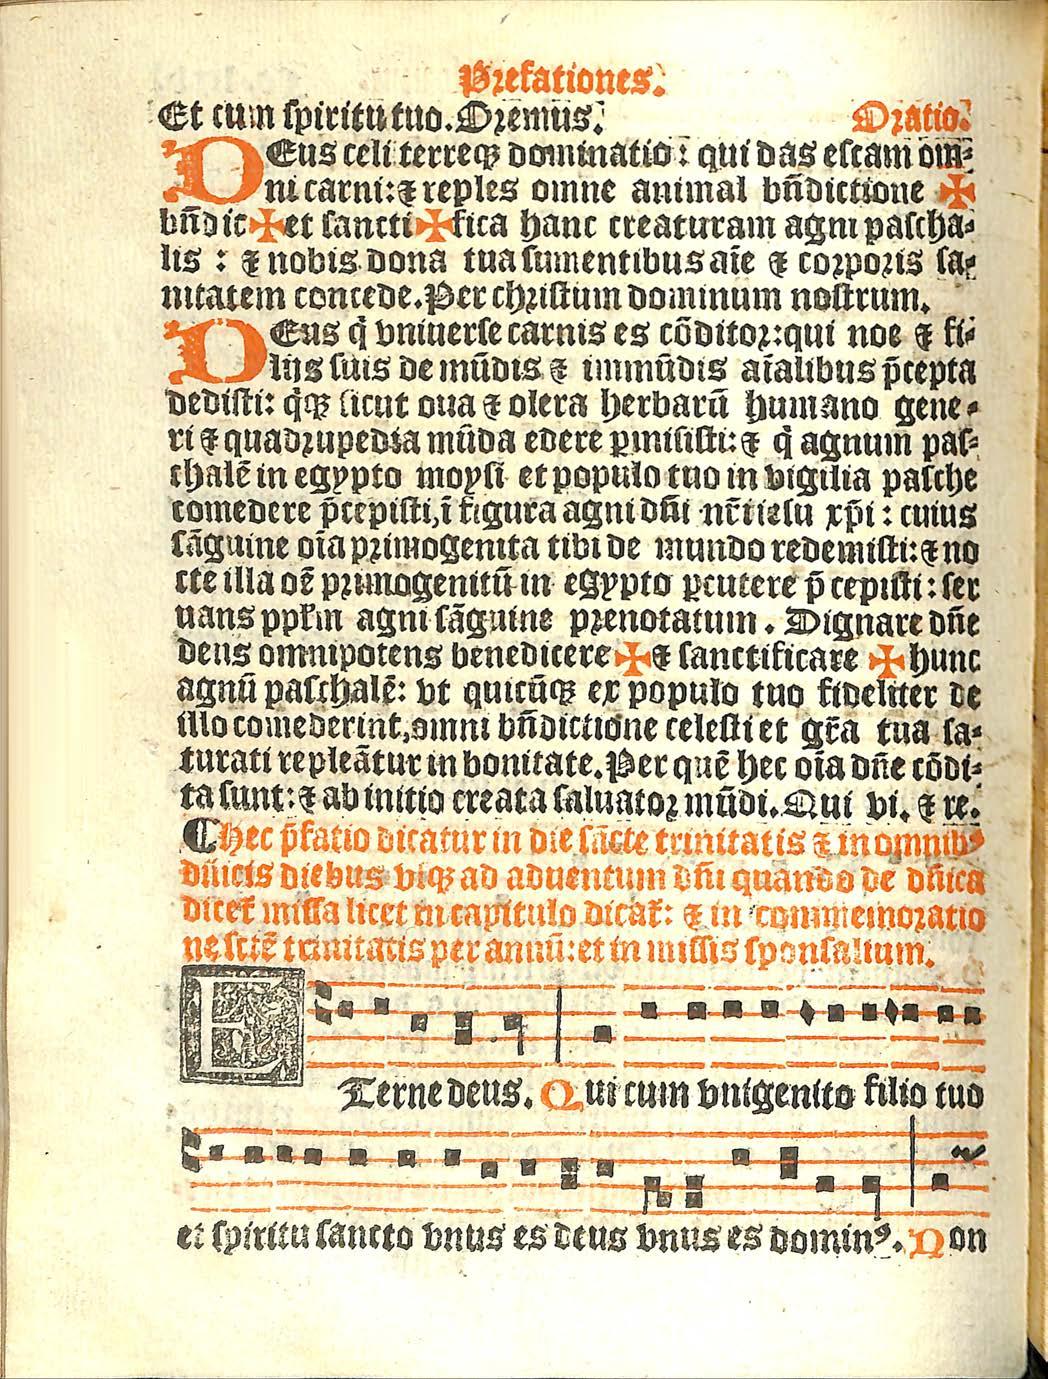 Prefationes.
Et cum spiritu tuo. Oremus. Oratio.
DEus celi terreqꝫ dominatio: qui das escam om⸗
ni carni: ⁊ reples omne animal bñdictione ✠
bñdic ✠ et sancti ✠ fica hanc creaturam agni pascha⸗
lis: ⁊ nobis dona tua sumentibus aīe ⁊ corporis sa⸗
nitatem concede. Per christum dominum nostrum.
DEus q̇ vniuerse carnis es cōditor: qui noe ⁊ fi⸗
lijs suis de mūdis ⁊ immūdis aīalibus p̄cepta
dedisti: q̇qꝫ sicut oua ⁊ olera herbarū humano gene⸗
ri ⁊ quadrupedia mūda edere ꝑmisisti: ⁊ q̇ agnum pas⸗
chalē in egypto moysi et populo tuo in vigilia pasche
comedere p̄cepisti, ī figura agni dñi nr̄i iesu xp̄i: cuius
sāguine oīa primogenita tibi de mundo redemisti: ⁊ no
cte illa oē primogenitū in egypto ꝑcutere p̄cepisti: ser
uans ppl̄m agni sāguine prenotatum. Dignare dñe
deus omnipotens benedicere ✠ ⁊ sanctificare ✠ hunc
agnū paschalē: vt quicūqꝫ ex populo tuo fideliter de
illo comederint, omni bñdictione celesti et gr̄a tua sa⸗
turati repleātur in bonitate. Per quē hec oīa dñe cōdi⸗
ta sunt: ⁊ ab initio creata saluator mūdi. Qui vi. ⁊ re.
¶ Hec p̄fatio dicatur in die sācte trinitatis ⁊ in omnibꝰ
dñicis diebus vsqꝫ ad aduentum dñi quando de dñica
dicet᷑ missa licet in capitulo dicat᷑: ⁊ in commemoratio
ne sctē trinitatis per annū: et in missis sponsalium.
ETerne deus. Qui cum vnigenito filio tuo
et spiritu sancto vnus es deus vnus es dominꝰ. Non